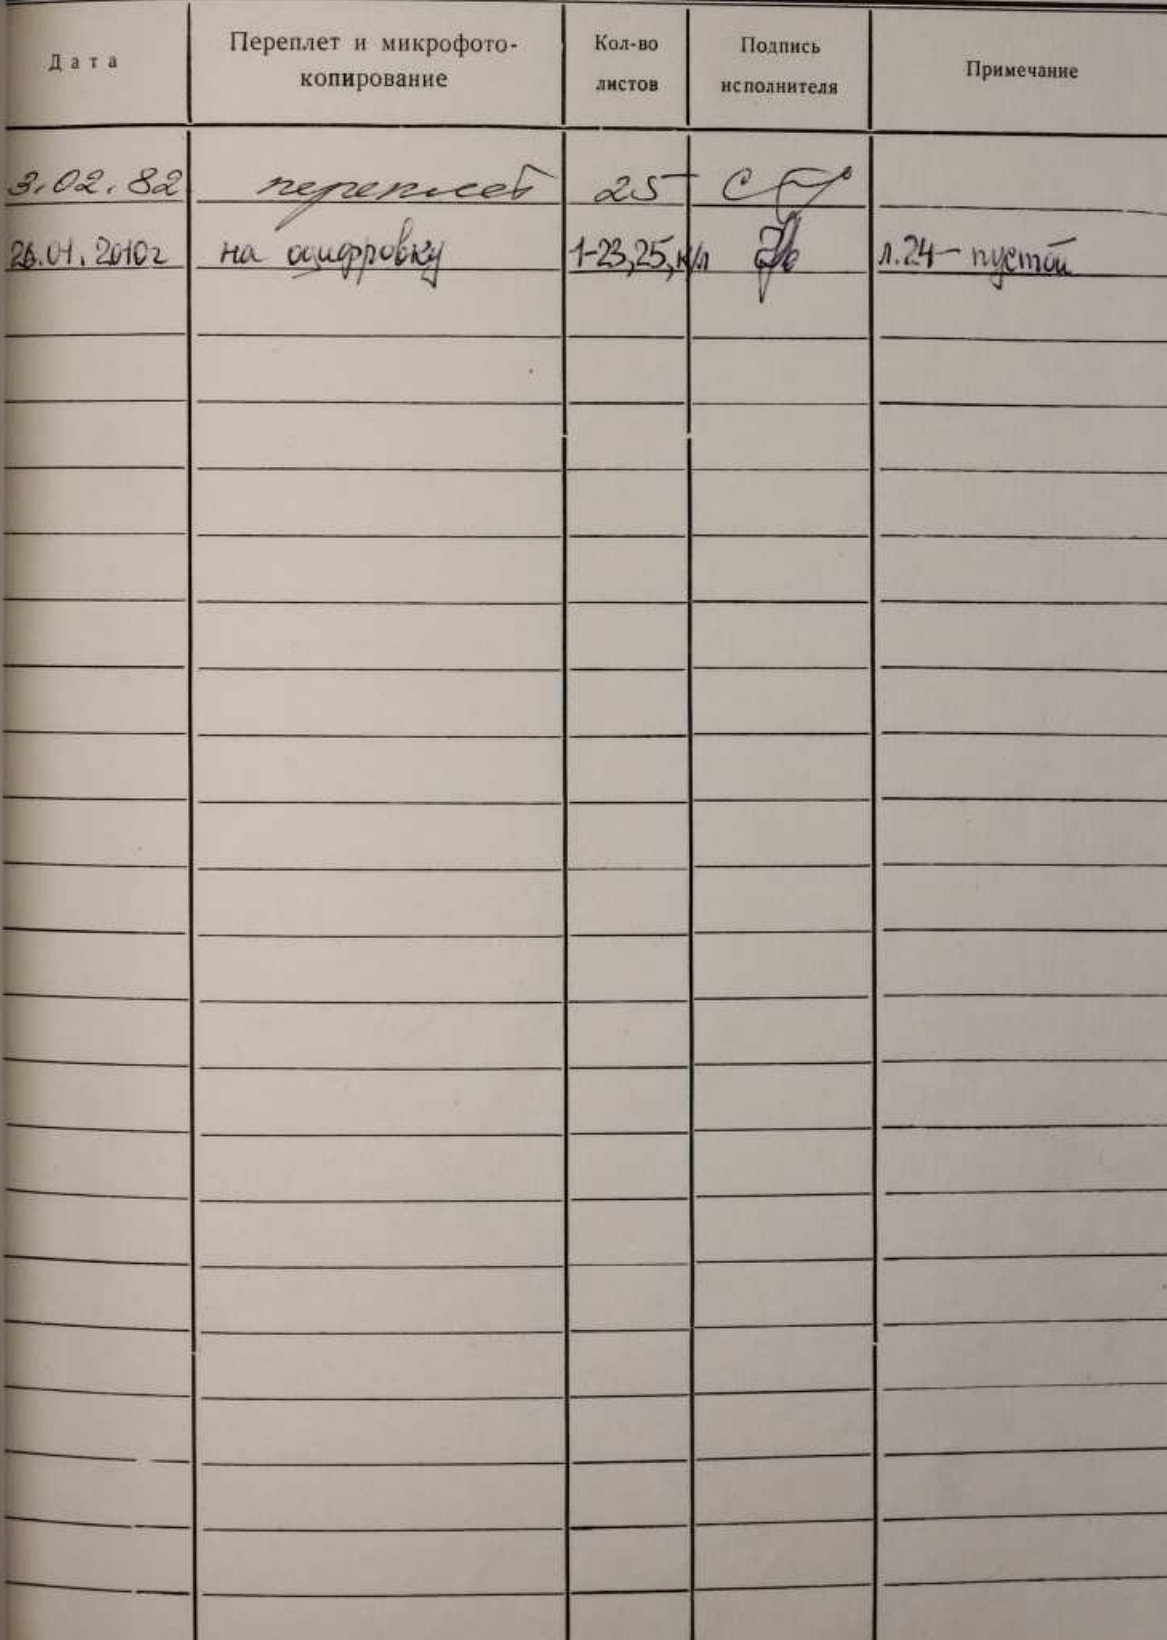 Дата
Переплет и микрофото-
копирование
Кол-во
листов
Подпись
исполнителя
Примечание
3.02.82 переплет 25
26.01.2010г на оцифровку 1-23,25,к/л л.24- пустой